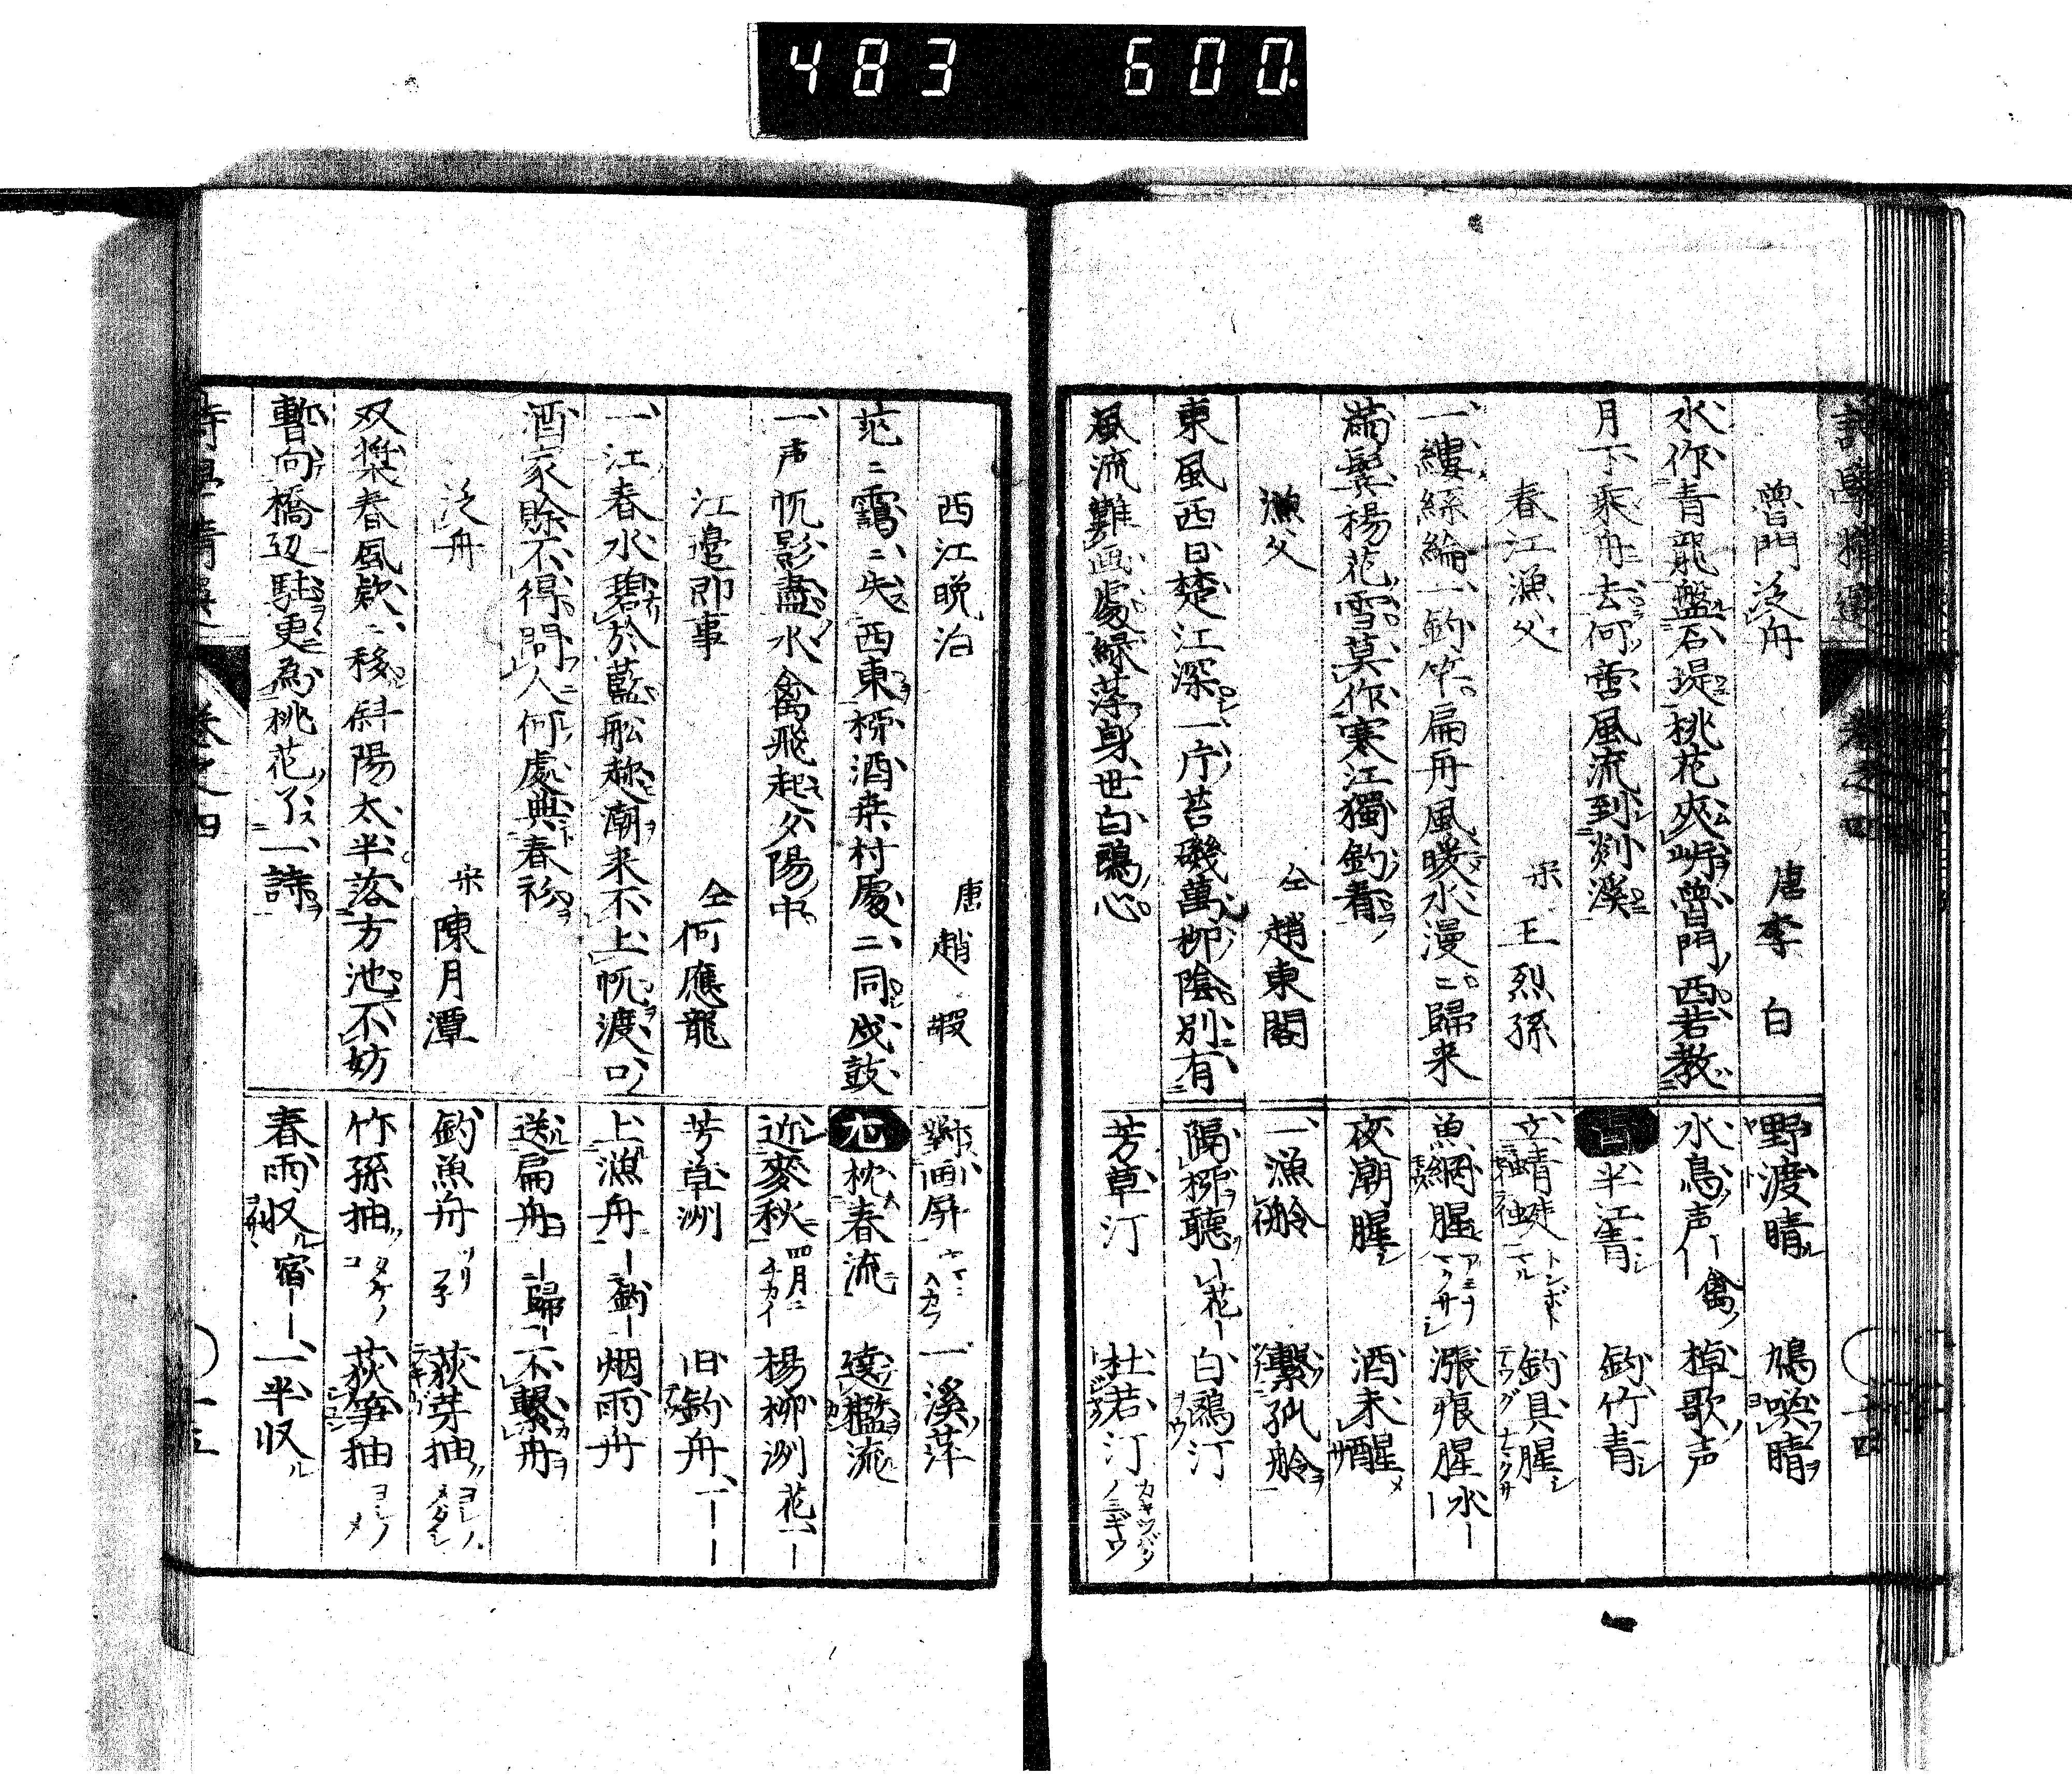 483 600.
魯門泛舟 唐 李白
水作青龍盤石堤桃花夾岍魯門西若教
月下乘舟去何啻風流到剡溪
春江漁父 宋 王烈孫
一縷絲綸一釣竹扁舟風暖水漫〻歸来
滿鬓楊花雪莫作寒江獨釣看
漁父 仝 趙東閣
東風西日楚江深一片苔磯萬柳陰別有
風流難画處緑萍身世白鷗心
野渡晴 鳩喚晴
水鳥声 禽 棹歌声
半江青 釣竹青
立蜻蜓 トンボ 釣具腥
魚網腥 漲痕腥 水
夜潮腥 酒未醒
一漁舲 繫孤舲
隔柳聽 花 白鷗汀
芳草汀 杜若汀 カキツバタ
西江晩泊 唐 趙嘏
茫〻靄〻失西東柳酒桒村處〻同戍鼓
一声帆影盡水禽飛起夕陽中
江邉即事 仝 何應龍
一江春水碧於藍舩趂潮来不上帆渡口
酒家賒不得問人何處典春衫
泛舟 宋 陳月潭
双槳春風欵〻移斜陽太半落方池不妨
暫向橋辺駐更為桃花了一詩
對画屏 一溪萍
尤 枕春流 遶檻流
近麥秋 四月ニチカイ 楊柳洲 花
芳草洲 旧釣舟 一
上漁舟 釣 烟雨舟
送扁舟 歸 不繫舟
釣魚舟 荻芽抽
竹孫抽 タケノコ 荻笋抽
春雨収 宿 一半収
巻之四